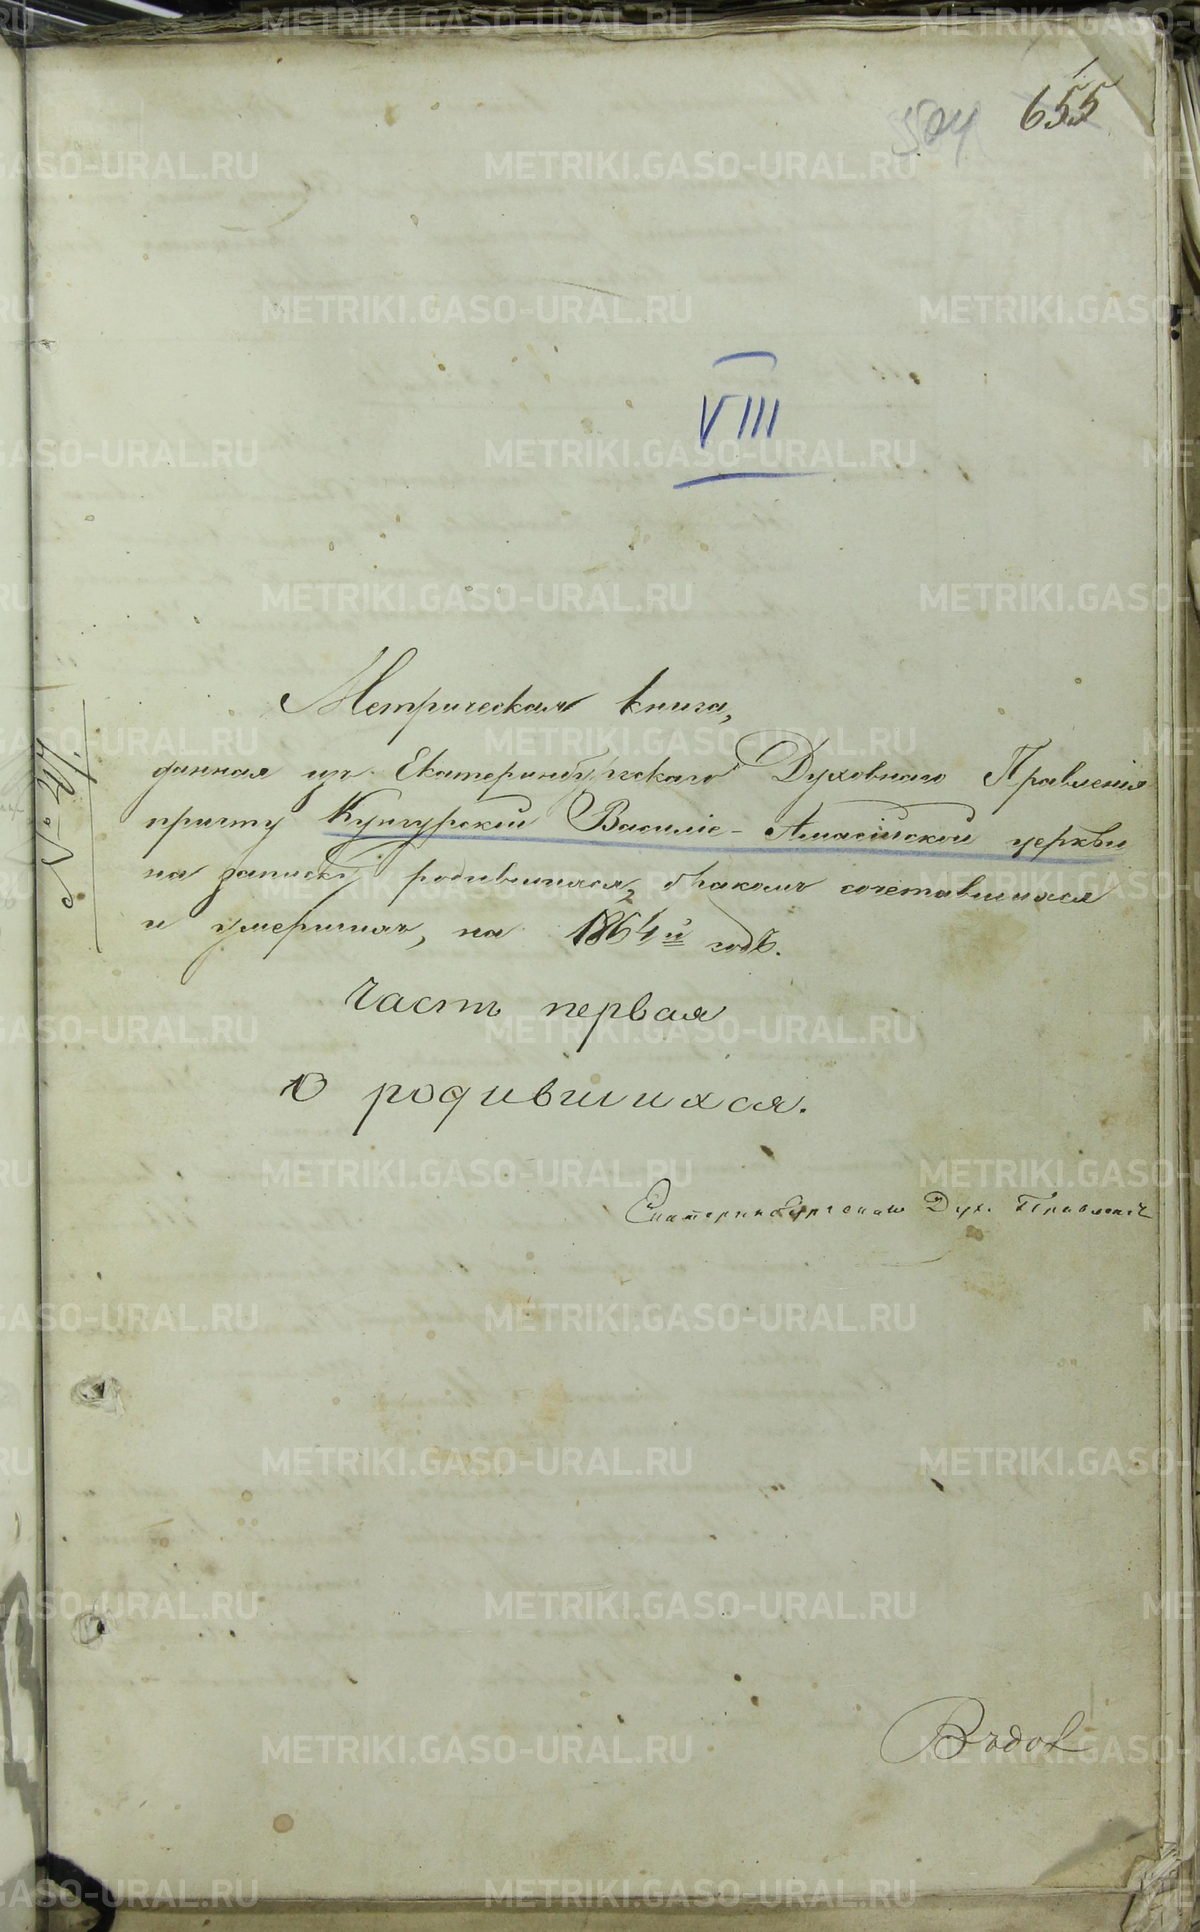 655
504
VIII
№ 47.
Метрическая книга,
данная изъ Екатеринбургскаго Духовнаго Правленія
причту Кунгурской Василіе-Амасійской церкви
на записку родившихся, бракомъ сочетавшихся
и умершихъ, на 1864й годъ.
Часть первая
О родившихся.
Екатеринбургскаго Дух. Правленія
METRIKI.GASO-URAL.RU